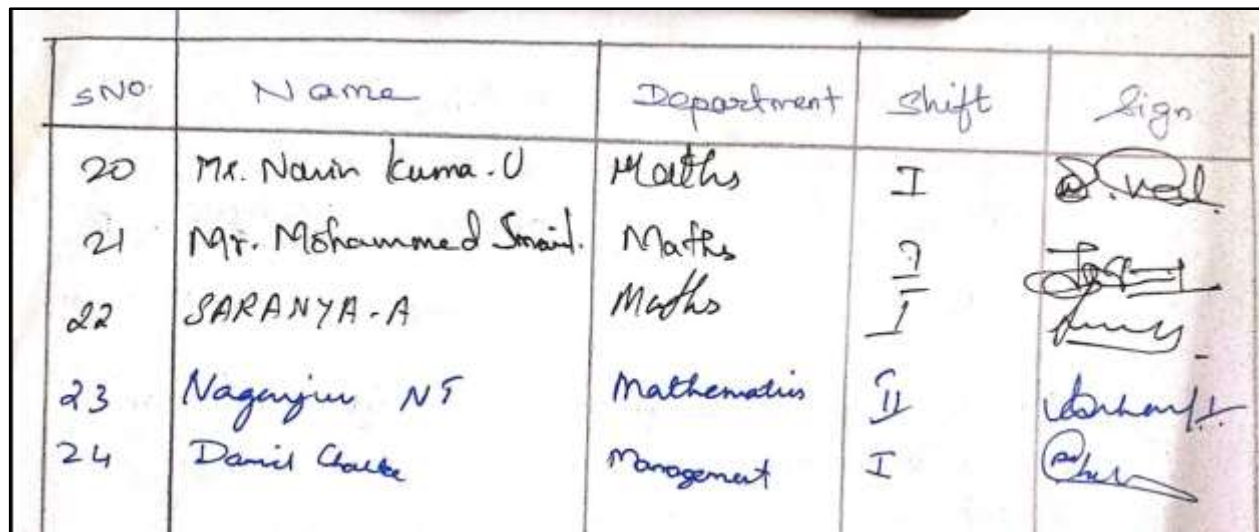 SNO. Name Department Shift Sign
20 Mr. Navin Kuma. U Maths I
21 Mr. Mohammed Smail. Maths I
22 SARANYA. A Maths I
23 NT Mathematics II
24 Daniel Management I